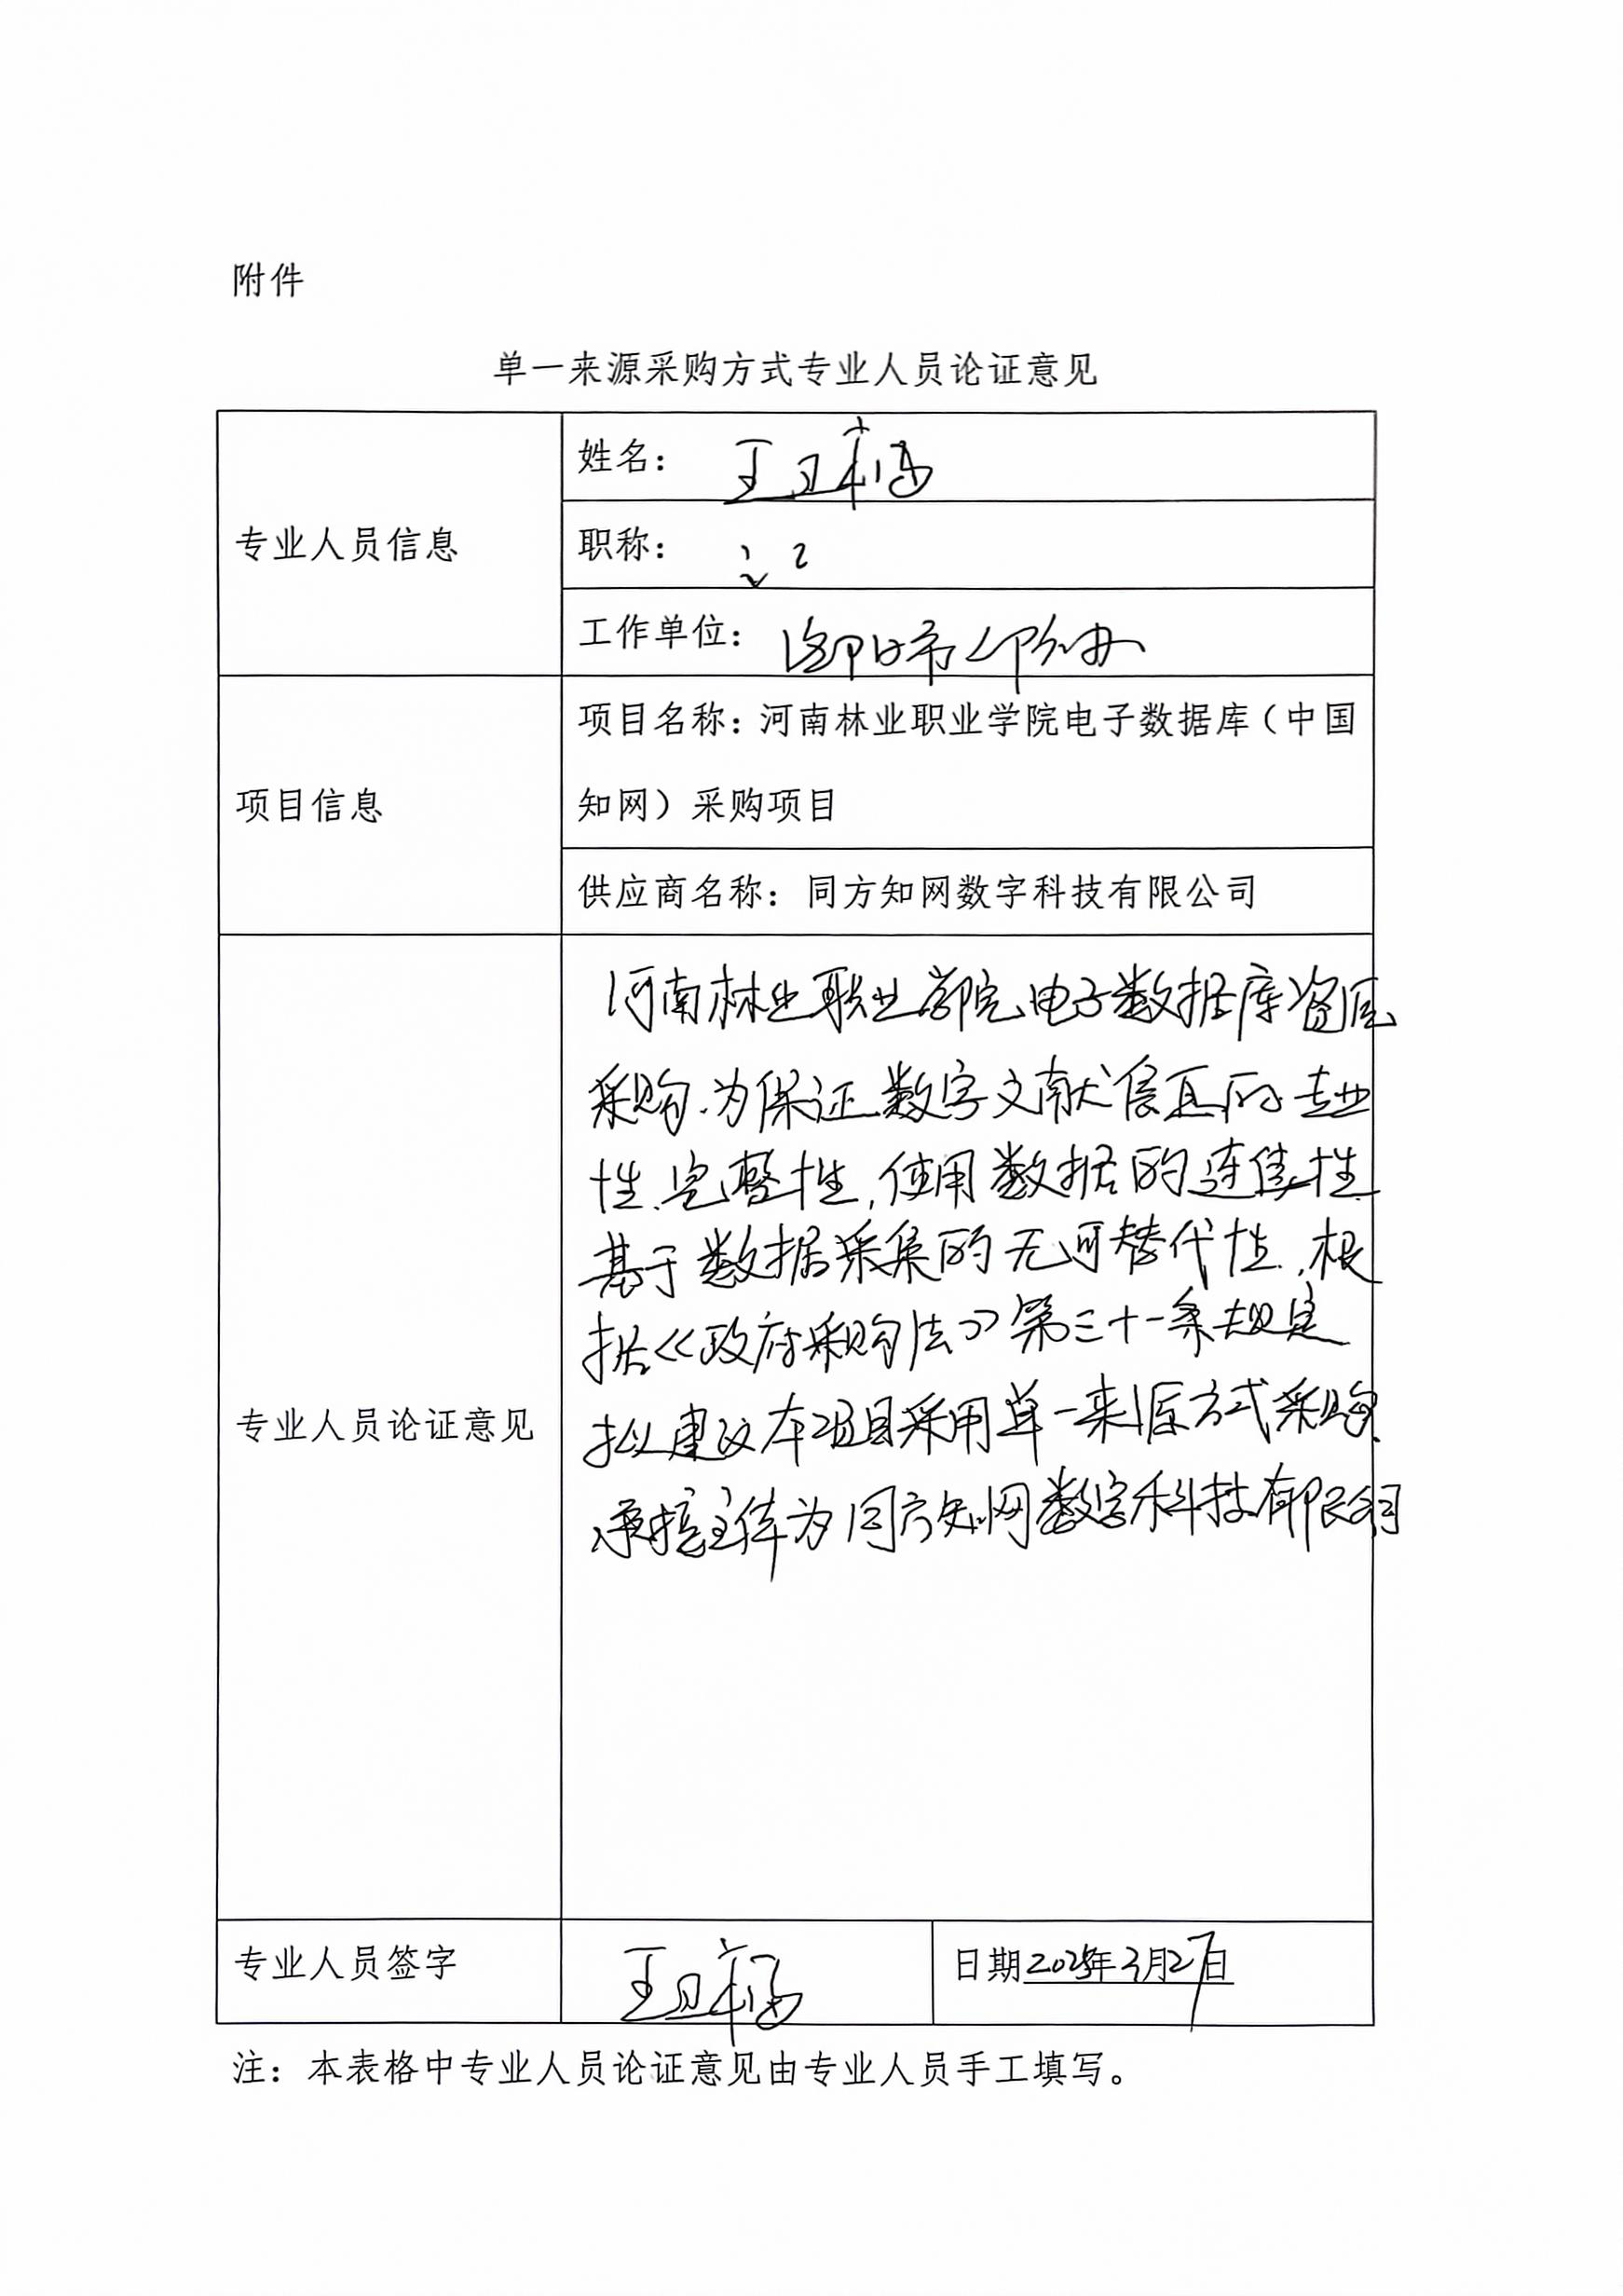 附件
单一来源采购方式专业人员论证意见
专业人员信息
姓名：王卫福
职称：
工作单位：洛阳市
项目信息
项目名称：河南林业职业学院电子数据库（中国
知网）采购项目
供应商名称：同方知网数字科技有限公司
专业人员论证意见
河南林业职业学院电子数据库资源
采购.为保证数字文献信息的专业
性.完整性,使用数据的连续性
基于数据采集的无可替代性,根
据《政府采购法》第三十一条规定
拟建议本项目采用单一来源方式采购.
承接主体为同方知网数字科技有限公司
专业人员签字
日期2025年3月27日
注：本表格中专业人员论证意见由专业人员手工填写。